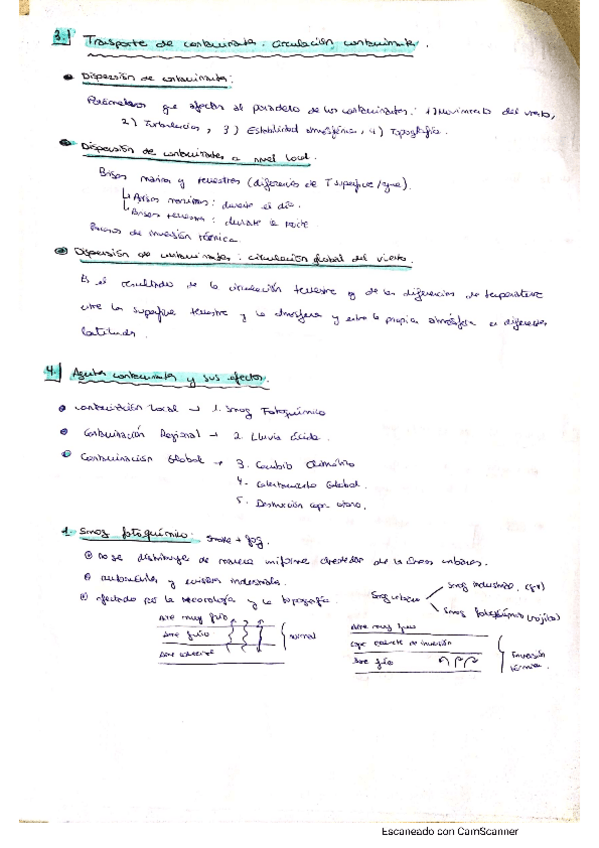 3. Transporte de contaminantes: circulación contaminante.
• Dispersión de contaminantes:
Parámetros que afectan al paradero de los contaminantes: 1) Movimiento del viento,
2) Turbulencias, 3) Estabilidad atmosférica, 4) Topografía.
• Dispersión de contaminantes a nivel local.
Brisas marinas y terrestres (diferencias de T superficie/agua).
↳ Brisas marinas: durante el día.
↳ Brisas terrestres: durante la noche
Procesos de inversión térmica.
• Dispersión de contaminantes: circulación global del viento.
Es el resultado de la circulación terrestre y de las diferencias de temperatura
entre la superficie terrestre y la atmósfera y entre la propia atmósfera a diferentes
latitudes.
4. Agentes contaminantes y sus efectos.
• Contaminación Local → 1. Smog Fotoquímico
• Contaminación Regional → 2. Lluvia Ácida.
• Contaminación Global → 3. Cambio Climático
4. Calentamiento Global.
5. Destrucción capa ozono.
1. Smog fotoquímico: smoke + fog.
• no se distribuye de manera uniforme alrededor de las áreas urbanas.
• automóviles y emisiones industriales.
• afectado por la meteorología y la topografía.
Smog urbano
Smog industrial (gris)
Smog fotoquímico (rojizo)
Aire muy frío
Aire frío
Aire
normal
Aire muy frío
capa caliente de inversión
Aire frío
Inversión
térmica.
Escaneado con CamScanner